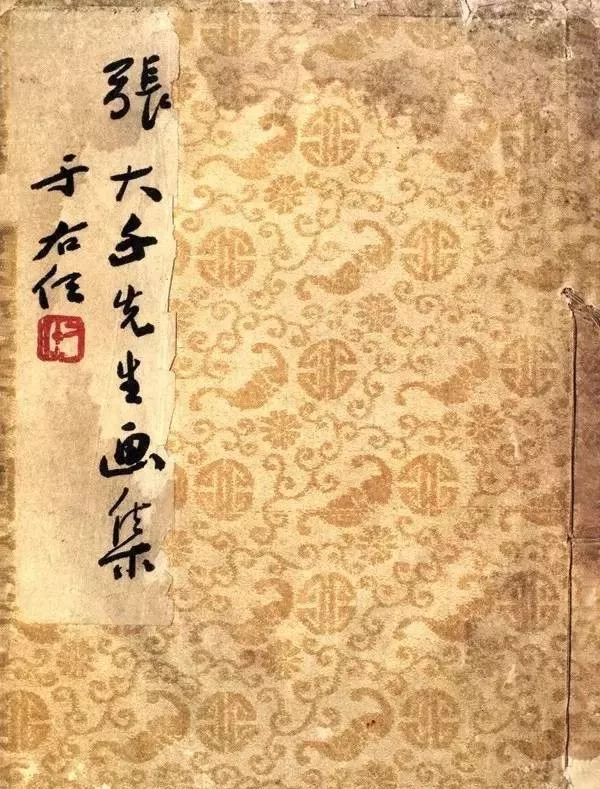 張大千先生画集
于右任